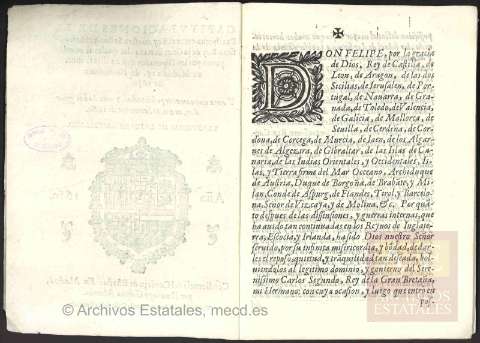 ✠
DON FELIPE, por la gracia
de Dios, Rey de Castilla, de
Leon, de Aragon, de las dos
Sicilias, de Ierusalen, de Por-
tugal, de Nauarra, de Gra-
nada, de Toledo, de Valencia,
de Galicia, de Mallorca, de
Seuilla, de Cerdeña, de Cor-
doua, de Corcega, de Murcia, de Jaen, de los Algar-
ues de Algezira, de Gibraltar, de las Islas de Ca-
naria, de las Indias Orientales, y Occidentales, Is-
las, y Tierra firme del Mar Occeano, Archiduque
de Austria, Duque de Borgoña, de Brabate, y Mi-
lan, Conde de Aspurg, de Flandes, Tirol, y Barcelona,
Señor de Vizcaya, y de Molina, &c. Por quã-
to despues de las dissensiones, y guerras internas, que
ha auido tan continuadas en los Reynos de Inglate-
rra, Escocia, y Irlanda, ha sido Dios nuestro Señor
seruido, por su infinita misericordia, y bõdad, de dar-
les el reposo, quietud, y trãquilidad tan deseada, bol-
uiendolos al legitimo dominio, y gouierno del Sere-
nissimo Carlos Segundo, Rey de la Gran Bretaña,
mi Hermano: con cuya ocasion, y luego que entrò en
© Archivos Estatales, mecd.es
ARCHIVOS
ESTATALES